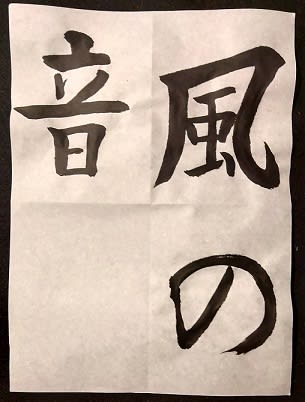 風の
音